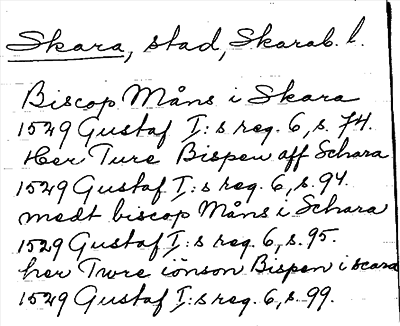 Skara, stad, Skarab. l.
Biscop Måns i Skara
1529 Gustaf I:s reg. 6, s. 74.
Her Ture Bispen aff Schara
1529 Gustaf I:s reg. 6, s. 94.
medt biscop Måns i Schara
1529 Gustaf I:s reg. 6, s. 95.
her Twre iönson Bispen i scara
1529 Gustaf I:s reg. 6, s. 99.